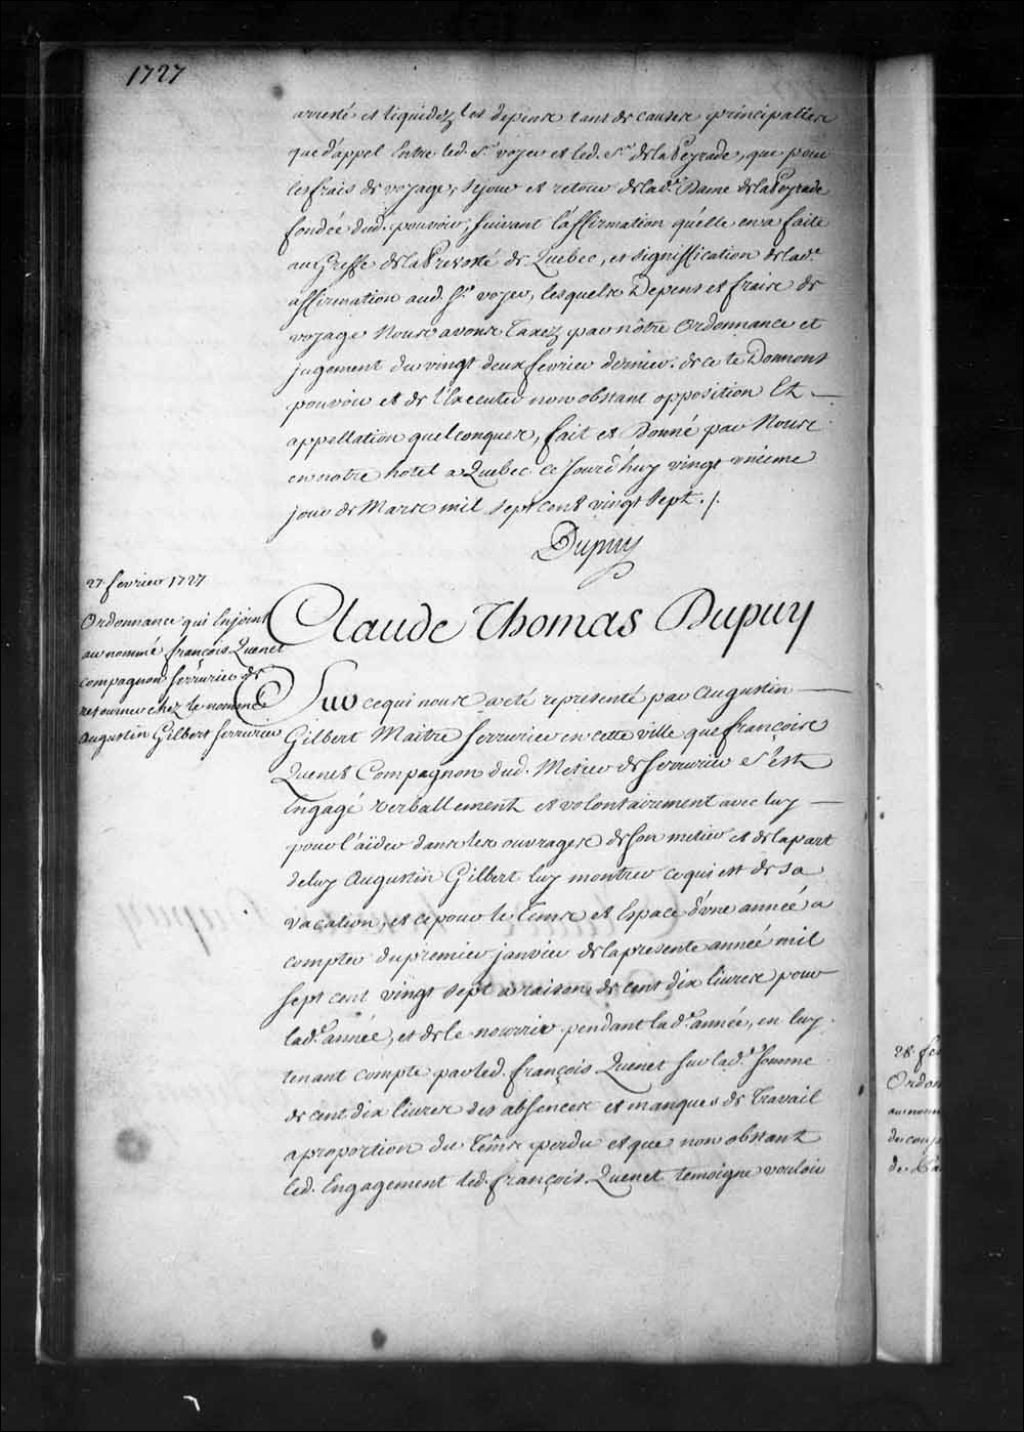 1727
arresté et liquidéz les depens tant de causes principalles
que d'appel Entre led. Sr. voyer et led. Sr. de la Peyrade, que pour
les frais de voyage, sejour et retour de lad.e Dame de la Peyrade
fondée dud. pouvoir, suivant l'affirmation qu'elle en a faite
au Greffe de la Prevosté de Quebec, et signiffication de lad.e
affirmation aud. Sr. voyer, lesquels Depens et frais de
voyage Nous avons Taxez par nôtre Ordonnance et
jugement du vingt deux fevrier dernier. de ce te Donnons
pouvoir et de l'Executer nonobstant opposition Et
appellation quelconques, fait et Donné par Nous
en notre hotel a Quebec ce Jourd'huy vingt unieme
jour de Mars mil sept cent vingt sept ./.
Dupuy
27 fevrier 1727
Ordonnance qui Enjoint
au nommé françois Quenet
compagnon serrurier de
retourner chez le nommé
Augustin Gilbert serrurier
Claude Thomas Dupuy
Sur ce qui nous a eté representé par Augustin
Gilbert Maitre serrurier en cette ville que françois
Quenet Compagnon dud. Metier de serrurier s'est
Engagé verballement et volontairement avec luy
pour l'aider dans les ouvrages de son metier et de la part
de luy Augustin Gilbert luy montrer ce qui est de sa
vacation, et ce pour le Tems et Espace d'une année a
compter du premier janvier de la presente année mil
sept cent vingt sept a raison de cent dix livres pour
lad.e année, et de le nourrir pendant lad.e année, en luy
tenant compte par led. françois Quenet sur lad.e somme
de cent dix livres des absences et manques de Travail
a proportion du Tems perdu et que nonobstant
led. Engagement led. françois Quenet temoigne vouloir
28 fe
Ordon
au nom
du coup